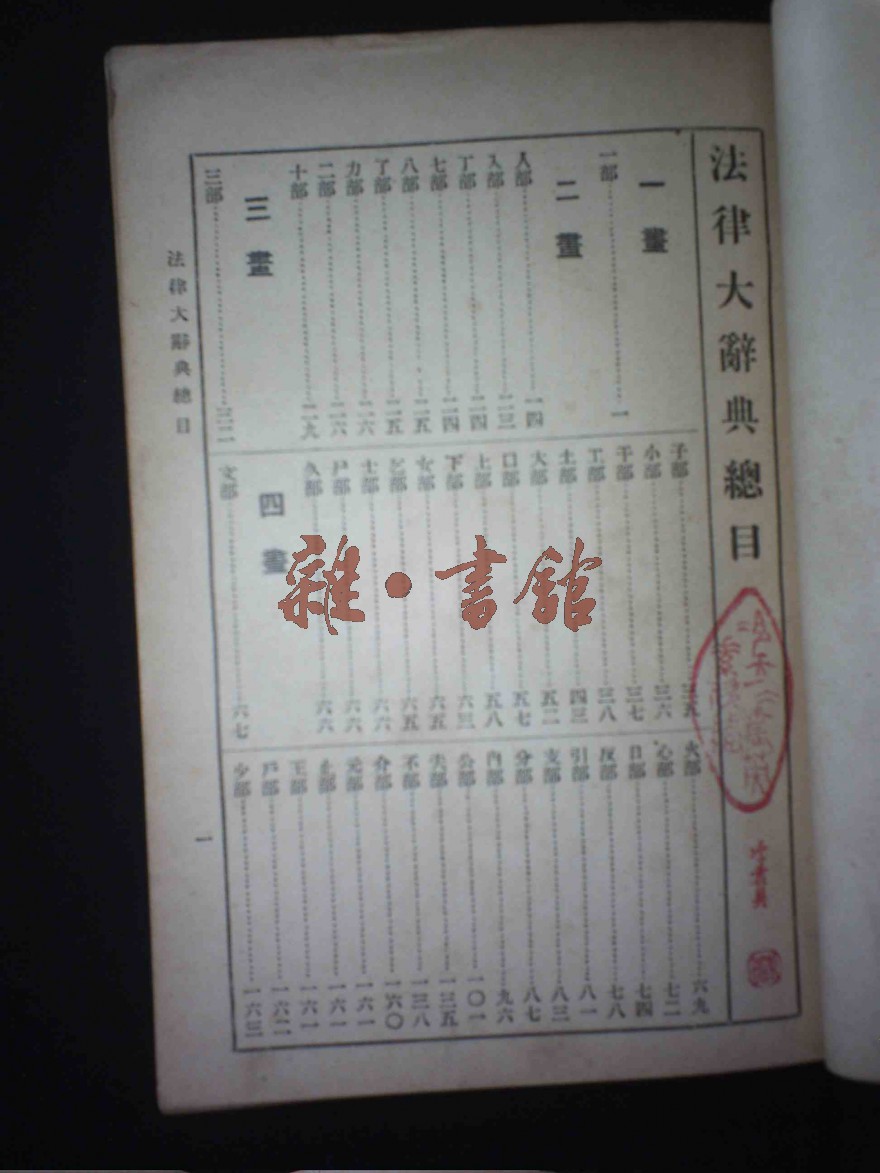 法律大辭典總目
一畫
一部……一
二畫
人部……一四
入部……二三
丁部……二四
七部……二四
八部……二五
了部……二五
力部……二六
二部……二六
十部……二九
三畫
三部……三二
子部……三五
小部……三六
干部……三七
工部……三八
土部……四三
大部……五二
口部……五七
上部……五八
下部……六三
女部……六五
乞部……六五
士部……六六
尸部……六六
久部……六六
四畫
文部……六七
火部……六九
心部……七二
日部……七四
反部……七八
引部……八一
支部……八三
分部……八七
內部……九六
公部……一〇一
夫部……一三五
不部……一三八
介部……一六〇
元部……一六一
止部……一六一
王部……一六一
戶部……一六二
少部……一六三
法律大辭典總目
一
雜·書館